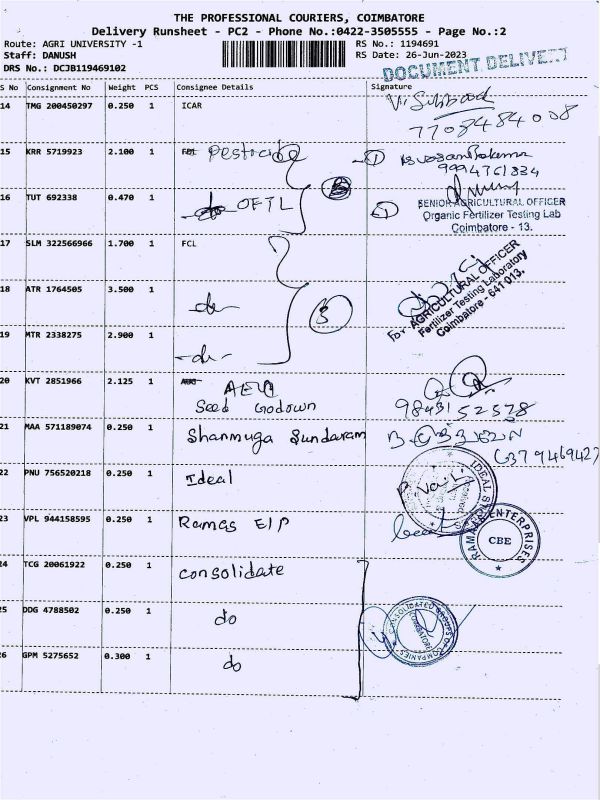 THE PROFESSIONAL COURIERS, COIMBATORE
Delivery Runsheet - PC2 - Phone No.:0422-3505555 - Page No.:2
Route: AGRI UNIVERSITY -1 RS No.: 1194691
Staff: DANUSH RS Date: 26-Jun-2023
DRS No.: DCJB119469102
DOCUMENT DELIVERY
S No Consignment No Weight PCS Consignee Details Signature
14 TMG 200450297 0.250 1 ICAR
7708484008
15 KRR 5719923 2.100 1 Pesticide 1
9994761834
16 TUT 692338 0.470 1 do OFTL
SENIOR AGRICULTURAL OFFICER
Organic Fertilizer Testing Lab
Coimbatore - 13.
17 SLM 322566966 1.700 1 FCL
18 ATR 1764505 3.500 1 do 3
For AGRICULTURAL OFFICER
Fertilizer Testing Laboratory
Coimbatore - 641 013.
19 MTR 2338275 2.900 1 -do-
20 KVT 2851966 2.125 1
Seed Godown 9843152578
21 MAA 571189074 0.250 1 Shanmuga Sundaram
22 PNU 756520218 0.250 1 Ideal
23 VPL 944158595 0.250 1 Ramas E/P
ENTERPRISES
CBE
24 TCG 20061922 0.250 1 consolidate
25 DDG 4788502 0.250 1 do
CONSOLIDATED GROUPS OF COMPANIES
COIMBATORE
26 GPM 5275652 0.300 1 do